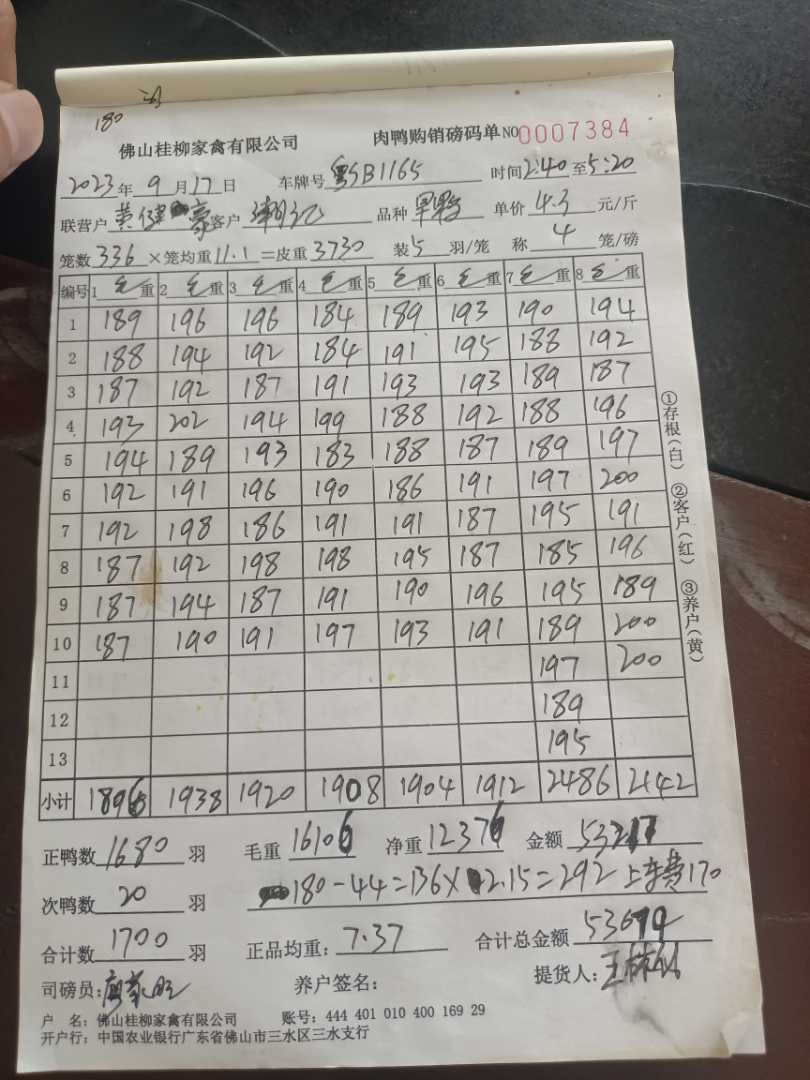 180
佛山桂柳家禽有限公司 肉鸭购销磅码单 NO 0007384
2023年9月17日 车牌号 粤SB1165 时间 2:40 至 5:20
联营户 黄 豪 客户 品种 单价 4.3 元/斤
笼数 336 ×笼均重 11.1 =皮重 3730 装 5 羽/笼 称 4 笼/磅
编号 1 毛重 2 毛重 3 毛重 4 毛重 5 毛重 6 毛重 7 毛重 8 毛重
1 189 196 196 184 189 193 190 194
2 188 194 192 184 191 195 188 192
3 187 192 187 191 193 193 189 187
4 193 202 194 199 188 192 188 196
5 194 189 193 183 188 187 189 197
6 192 191 196 190 186 191 197 200
7 192 198 186 191 191 187 195 191
8 187 192 198 198 195 187 185 196
9 187 194 187 191 190 196 195 189
10 187 190 191 197 193 191 189 200
11 197 200
12 189
13 195
小计 1896 1938 1920 1908 1904 1912 2486 2142
①存根(白) ②客户(红) ③养户(黄)
正鸭数 1680 羽 毛重 16106 净重 12376 金额 53217
次鸭数 20 羽 180-44=136×2.15=292 上车费170
合计数 1700 羽 正品均重: 7.37 合计总金额 53679
司磅员: 养户签名: 提货人:
户 名: 佛山桂柳家禽有限公司 账号: 444 401 010 400 169 29
开户行: 中国农业银行广东省佛山市三水区三水支行